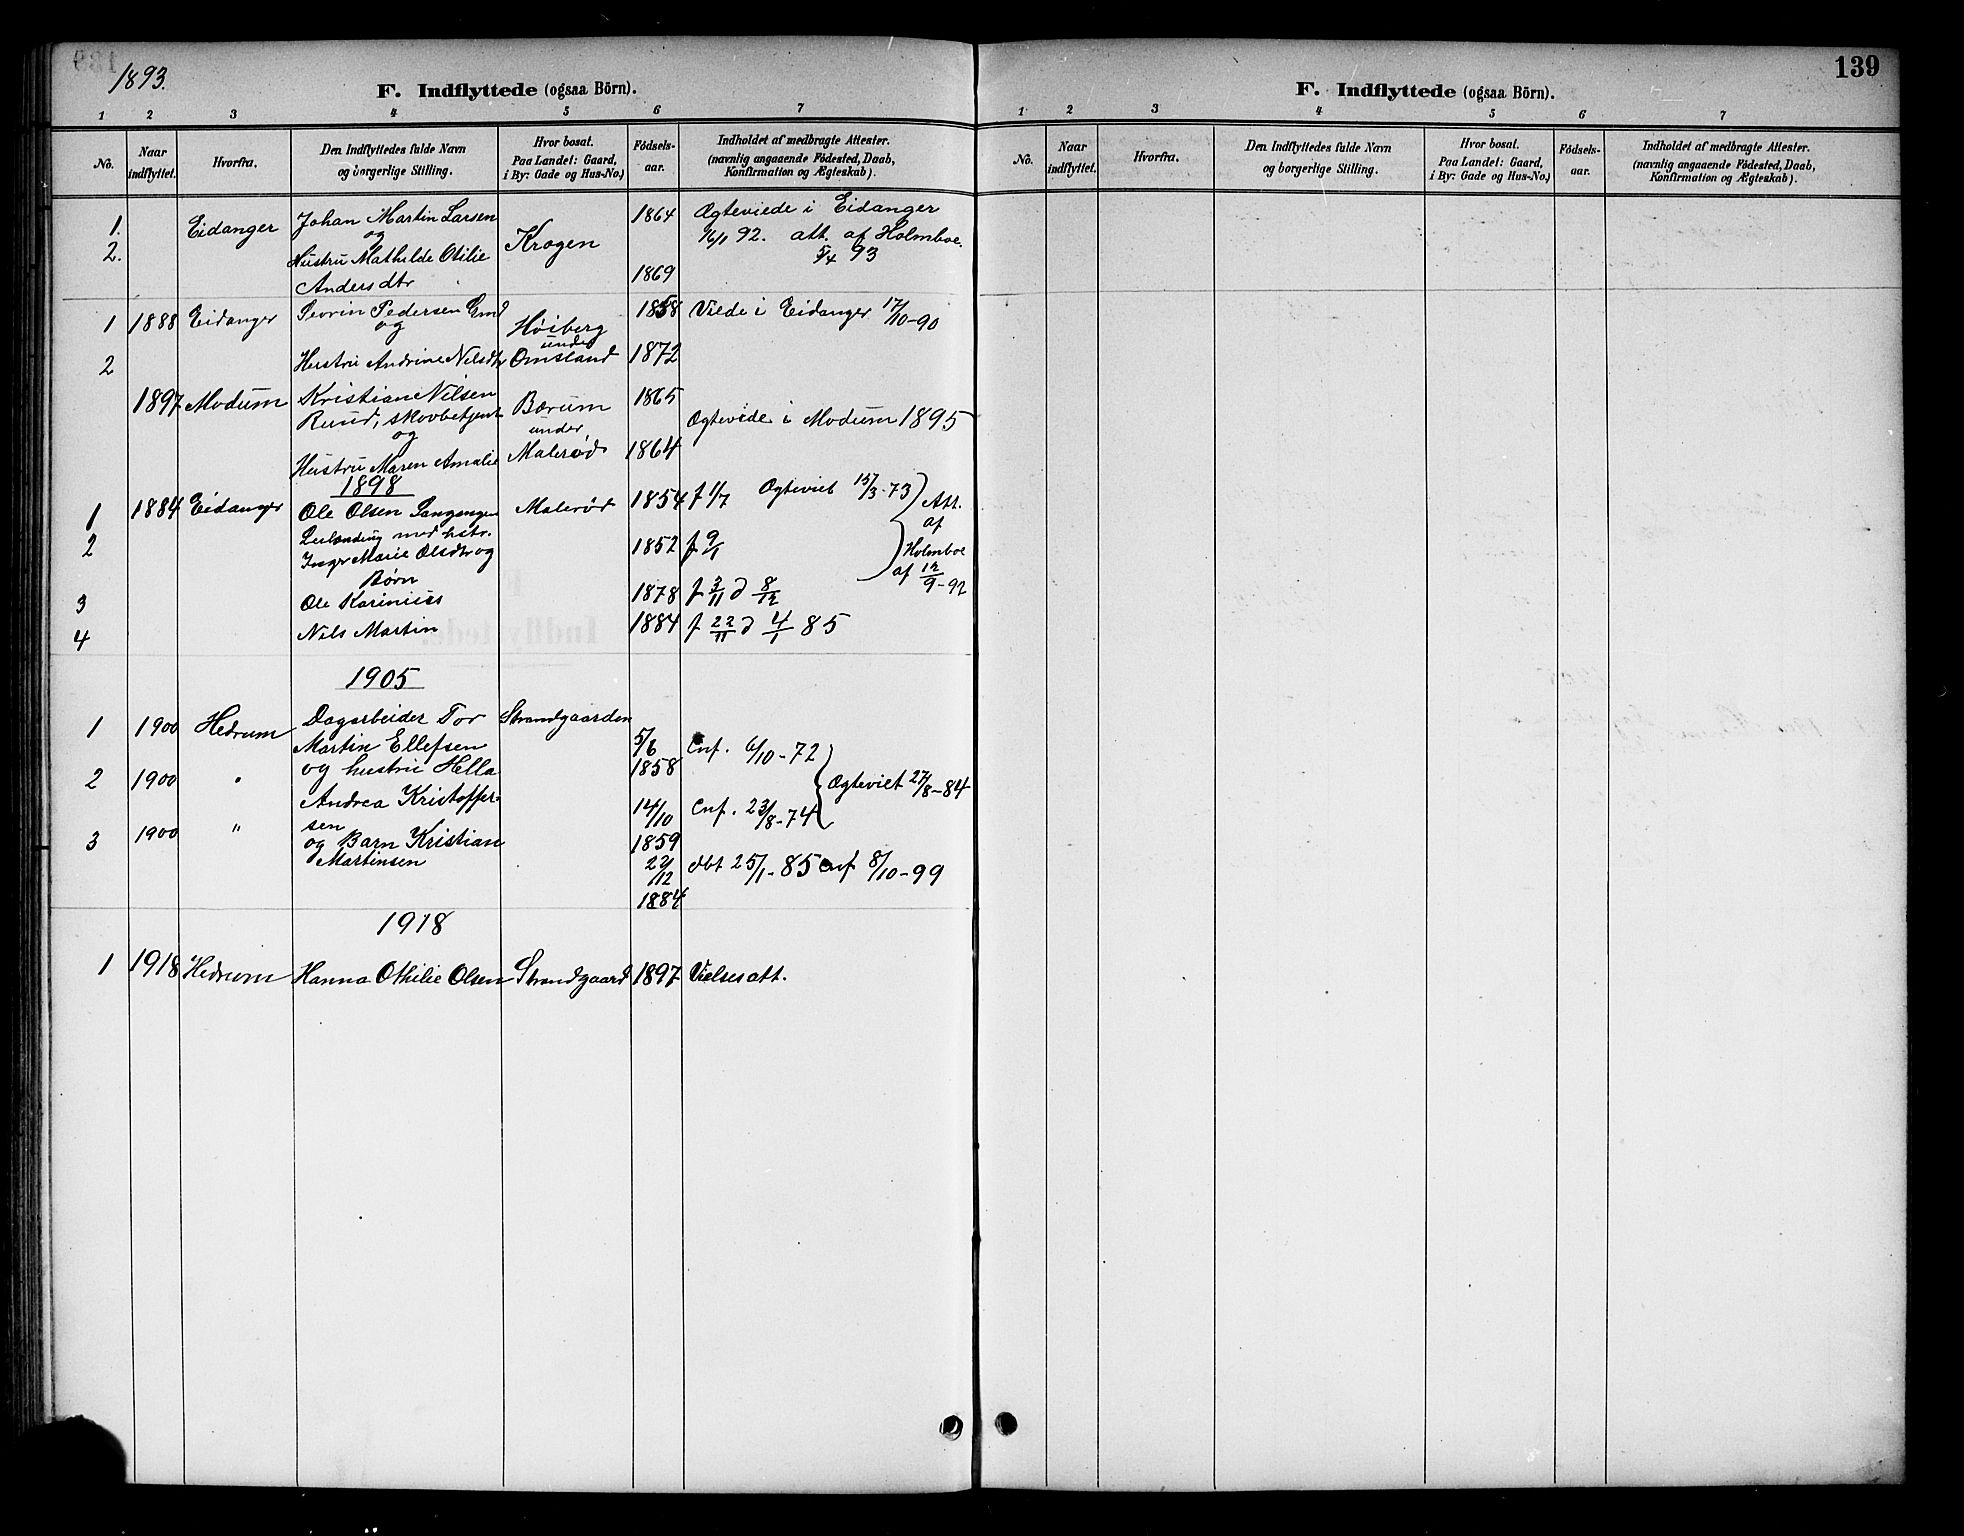 1893.
F. Indflyttede (ogsaa Börn).
1 2 3 4 5 6 7
No. Naar indflyttet. Hvorfra. Den Indflyttedes fulde Navn og borgerlige Stilling. Hvor bosat. Paa Landet: Gaard, i By: Gade og Hus-No.) Födsels-aar. Indholdet af medbragte Attester. (navnlig angaaende Födested, Daab, Konfirmation og Ægteskab).
1. Eidanger Johan Martin Larsen 1864 Ægteviede i Eidanger
og Krogen 16/1 92. att. af Holmboe.
2. Hustru Mathilde Otilie 5/4 93
Andersdtr 1869
1 1888 Eidanger Pedersen 1858 Viede i Eidanger 17/10-90
og Høiberg
under
2 Hustru Andrine Nilsdtr Omsland 1872
1897 Modum Kristian Nilsen 1865
Ruud, skovbetjent Bærum Ægteviede i Modum 1895
og under
Hustru Maren Amalie Malerød 1864
1898
1 1884 Eidanger Ole Olsen Langangen Malerød 1854 f 1/7 Ægteviet 15/3-73 Att.
med hstr. af
2 Inger Marie Olsdtr og 1852 f 9/1 Holmboe
Børn af 12/9-92
3 Ole Karinius 1878 f 3/11 d 8/12
4 Nils Martin 1884 f 22/11 d 4/1 85
1905
1 1900 Hedrum Dagarbeider Tor Strandgaarden
Martin Ellefsen 5/6 Cnf. 6/10-72
2 1900 " og hustru Hella 1858 Ægteviet 27/8-84
Andrea Kristoffer- 14/10 Cnf. 23/8-74
sen
3 1900 " og Barn Kristian 1859
Martinsen 22/12 dbt 25/1-85 Cnf 8/10-99
1884
1918
1 1918 Hedrum Hanna Othilie Olsen Strandgaard 1897 Vielsesatt.
139
F. Indflyttede (ogsaa Börn).
1 2 3 4 5 6 7
No. Naar indflyttet. Hvorfra. Den Indflyttedes fulde Navn og borgerlige Stilling. Hvor bosat. Paa Landet: Gaard, i By: Gade og Hus-No.) Födsels-aar. Indholdet af medbragte Attester. (navnlig angaaende Födested, Daab, Konfirmation og Ægteskab).